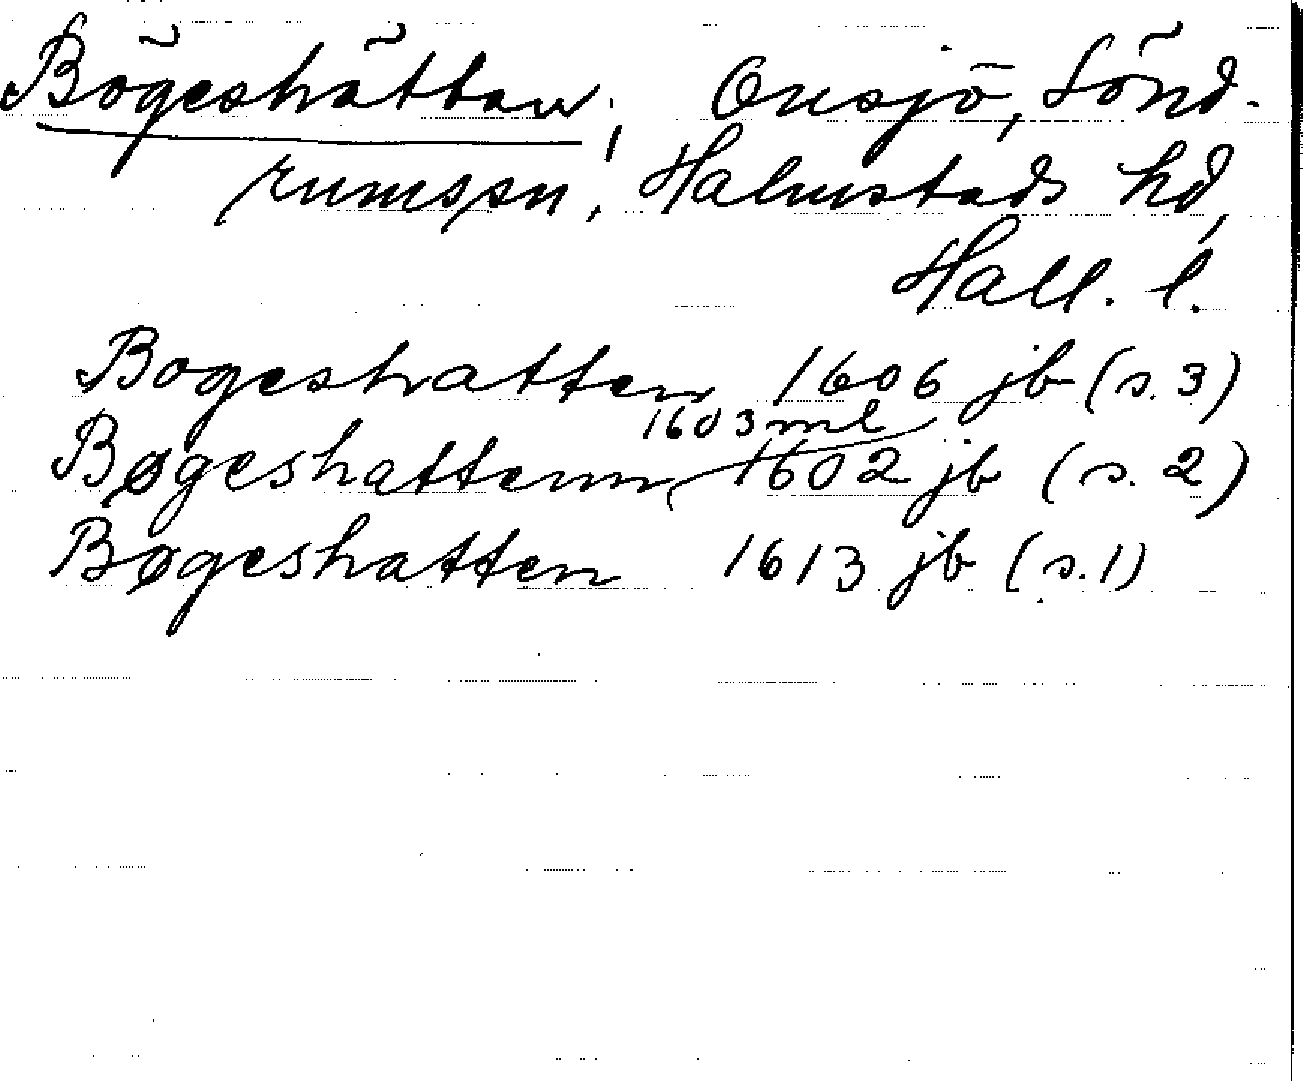 Bögeshättan, Onsjö, Sönd-
rumssn, Halmstads hd,
Hall. l.
Bogeshatten 1606 jb (s. 3)
1603 ml
Bøgeshattenn, 1602 jb (s. 2)
Bøgeshatten 1613 jb (s. 1)